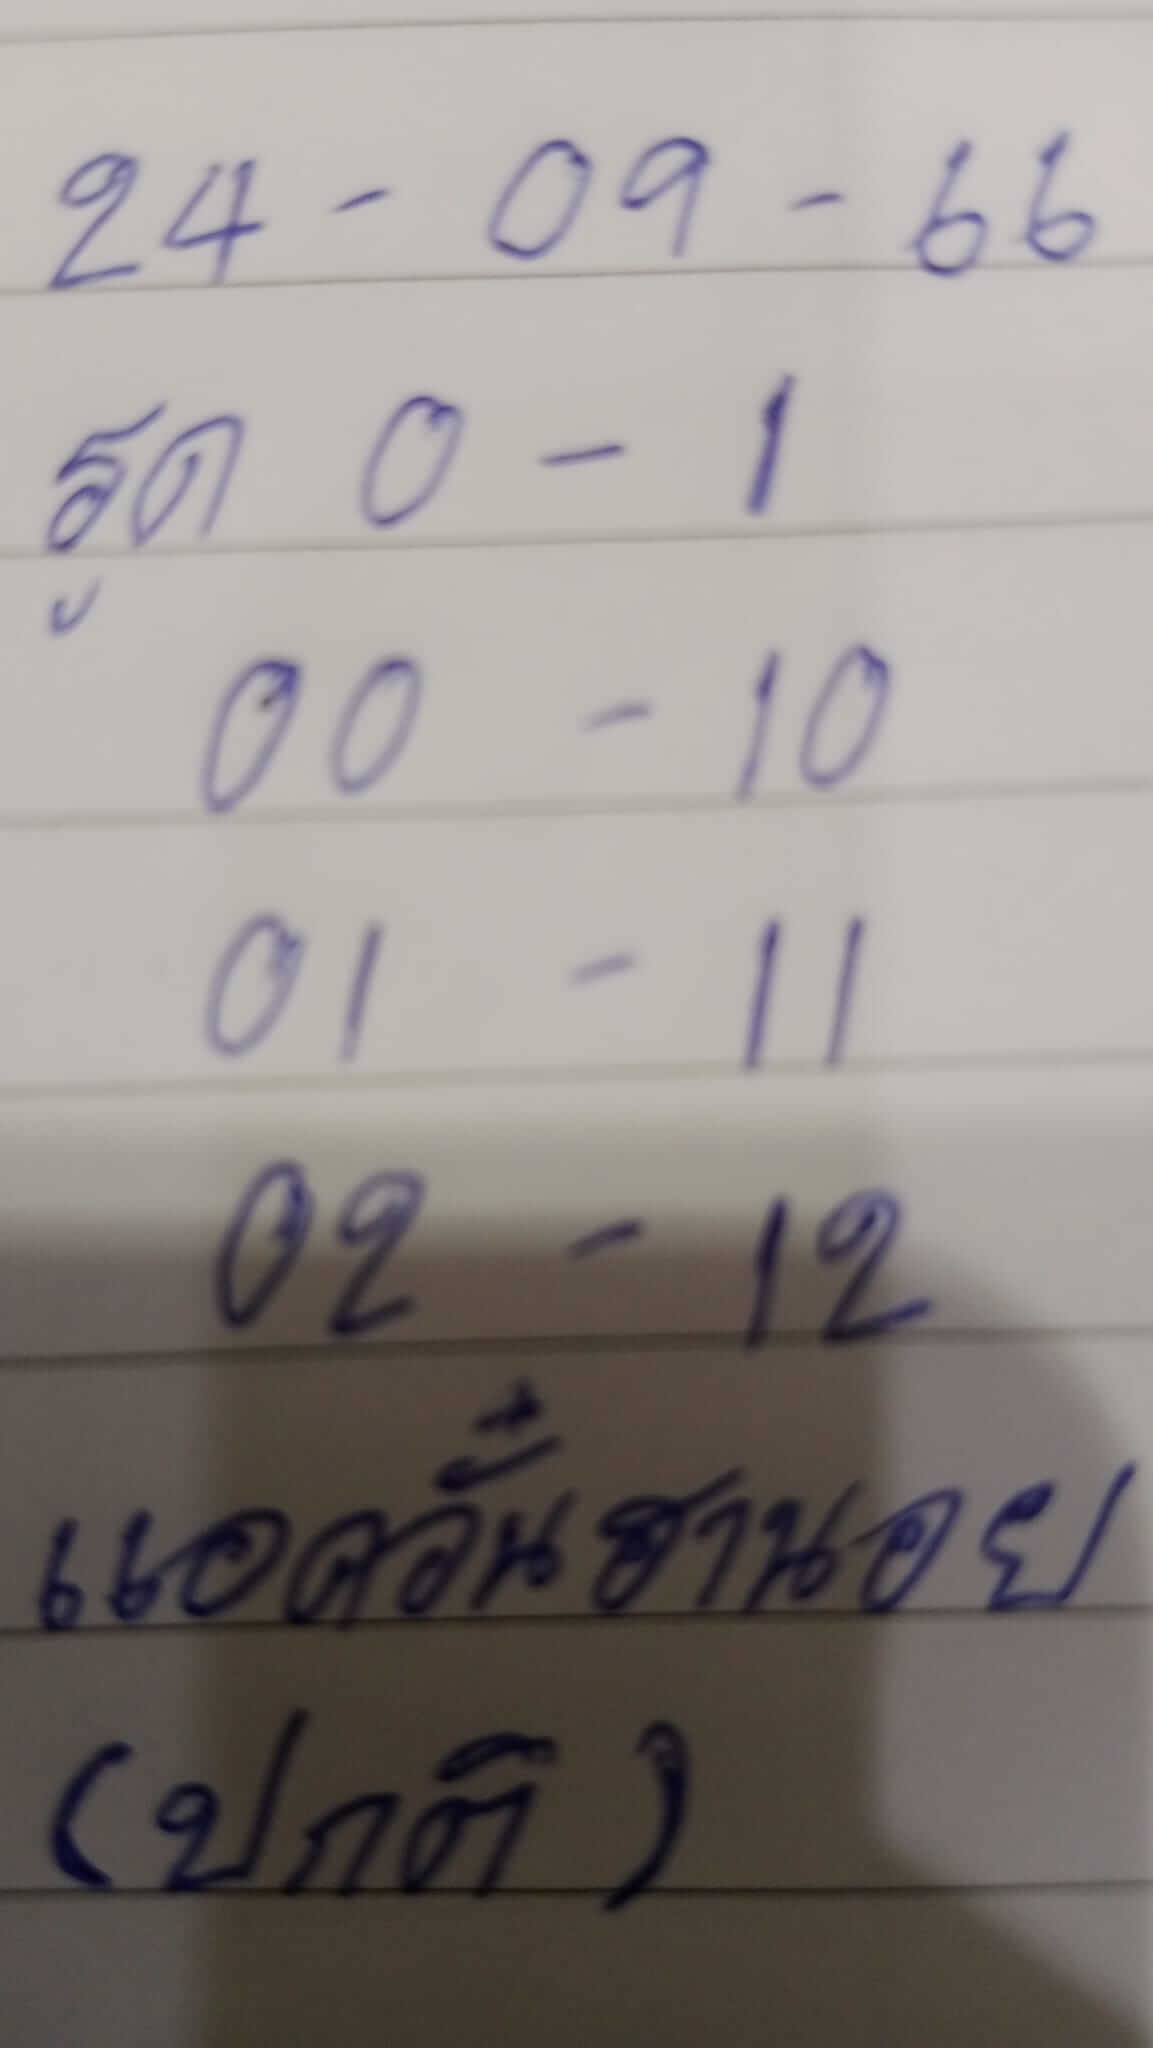 24 - 09 - 66
รูด 0 - 1
00 - 10
01 - 11
02 - 12
แอควั๋นฮานอย
(ปกติ)